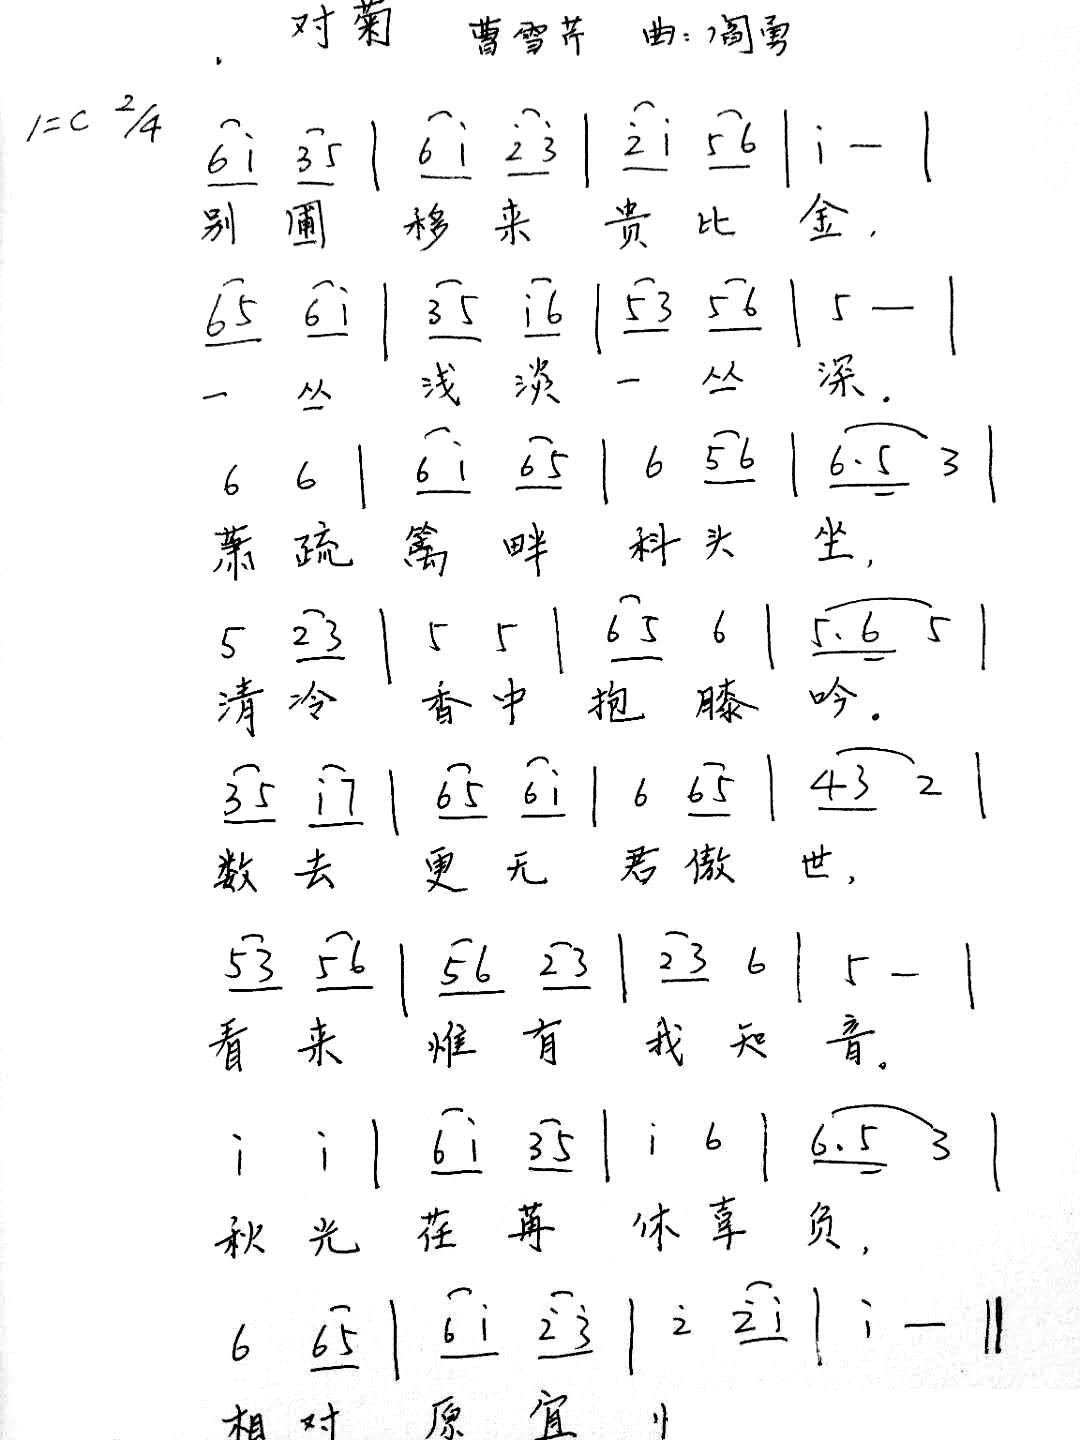 对菊 曹雪芹 曲:阎勇
1=C 2/4
6i 35 | 6i i̇2̇3̇ | 2̇i 56 | i — |
别圃 移来 贵比 金,
65 6i | 35 i6 | 53 56 | 5 — |
一丛 浅淡 一丛 深.
6 6 | 6i 65 | 6 56 | 6.5 3 |
萧疏 篱畔 科头 坐,
5 23 | 5 5 | 65 6 | 5.6 5 |
清冷 香中 抱膝 吟.
35 i7 | 65 6i | 6 65 | 43 2 |
数去 更无 君傲 世,
53 56 | 56 23 | 23 6 | 5 — |
看来 惟有 我知 音。
i i | 6i 35 | i 6 | 6.5 3 |
秋光 荏苒 休辜 负,
6 65 | 6i 2̇3̇ | 2̇ 2̇i | i — ‖
相对 原宜